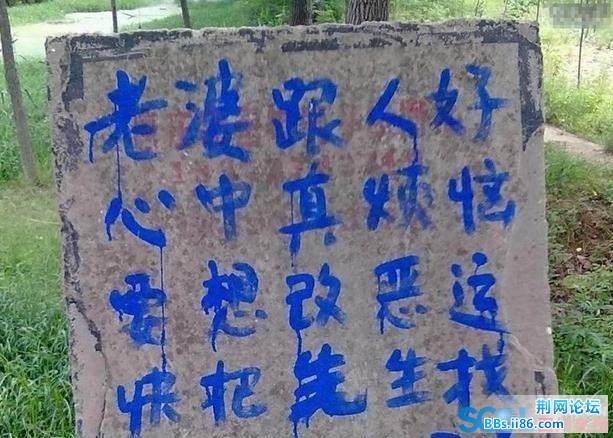 老婆跟人好
心中真烦恼
要想改恶运
快把先生找
荆网论坛
BBs.ii86.com